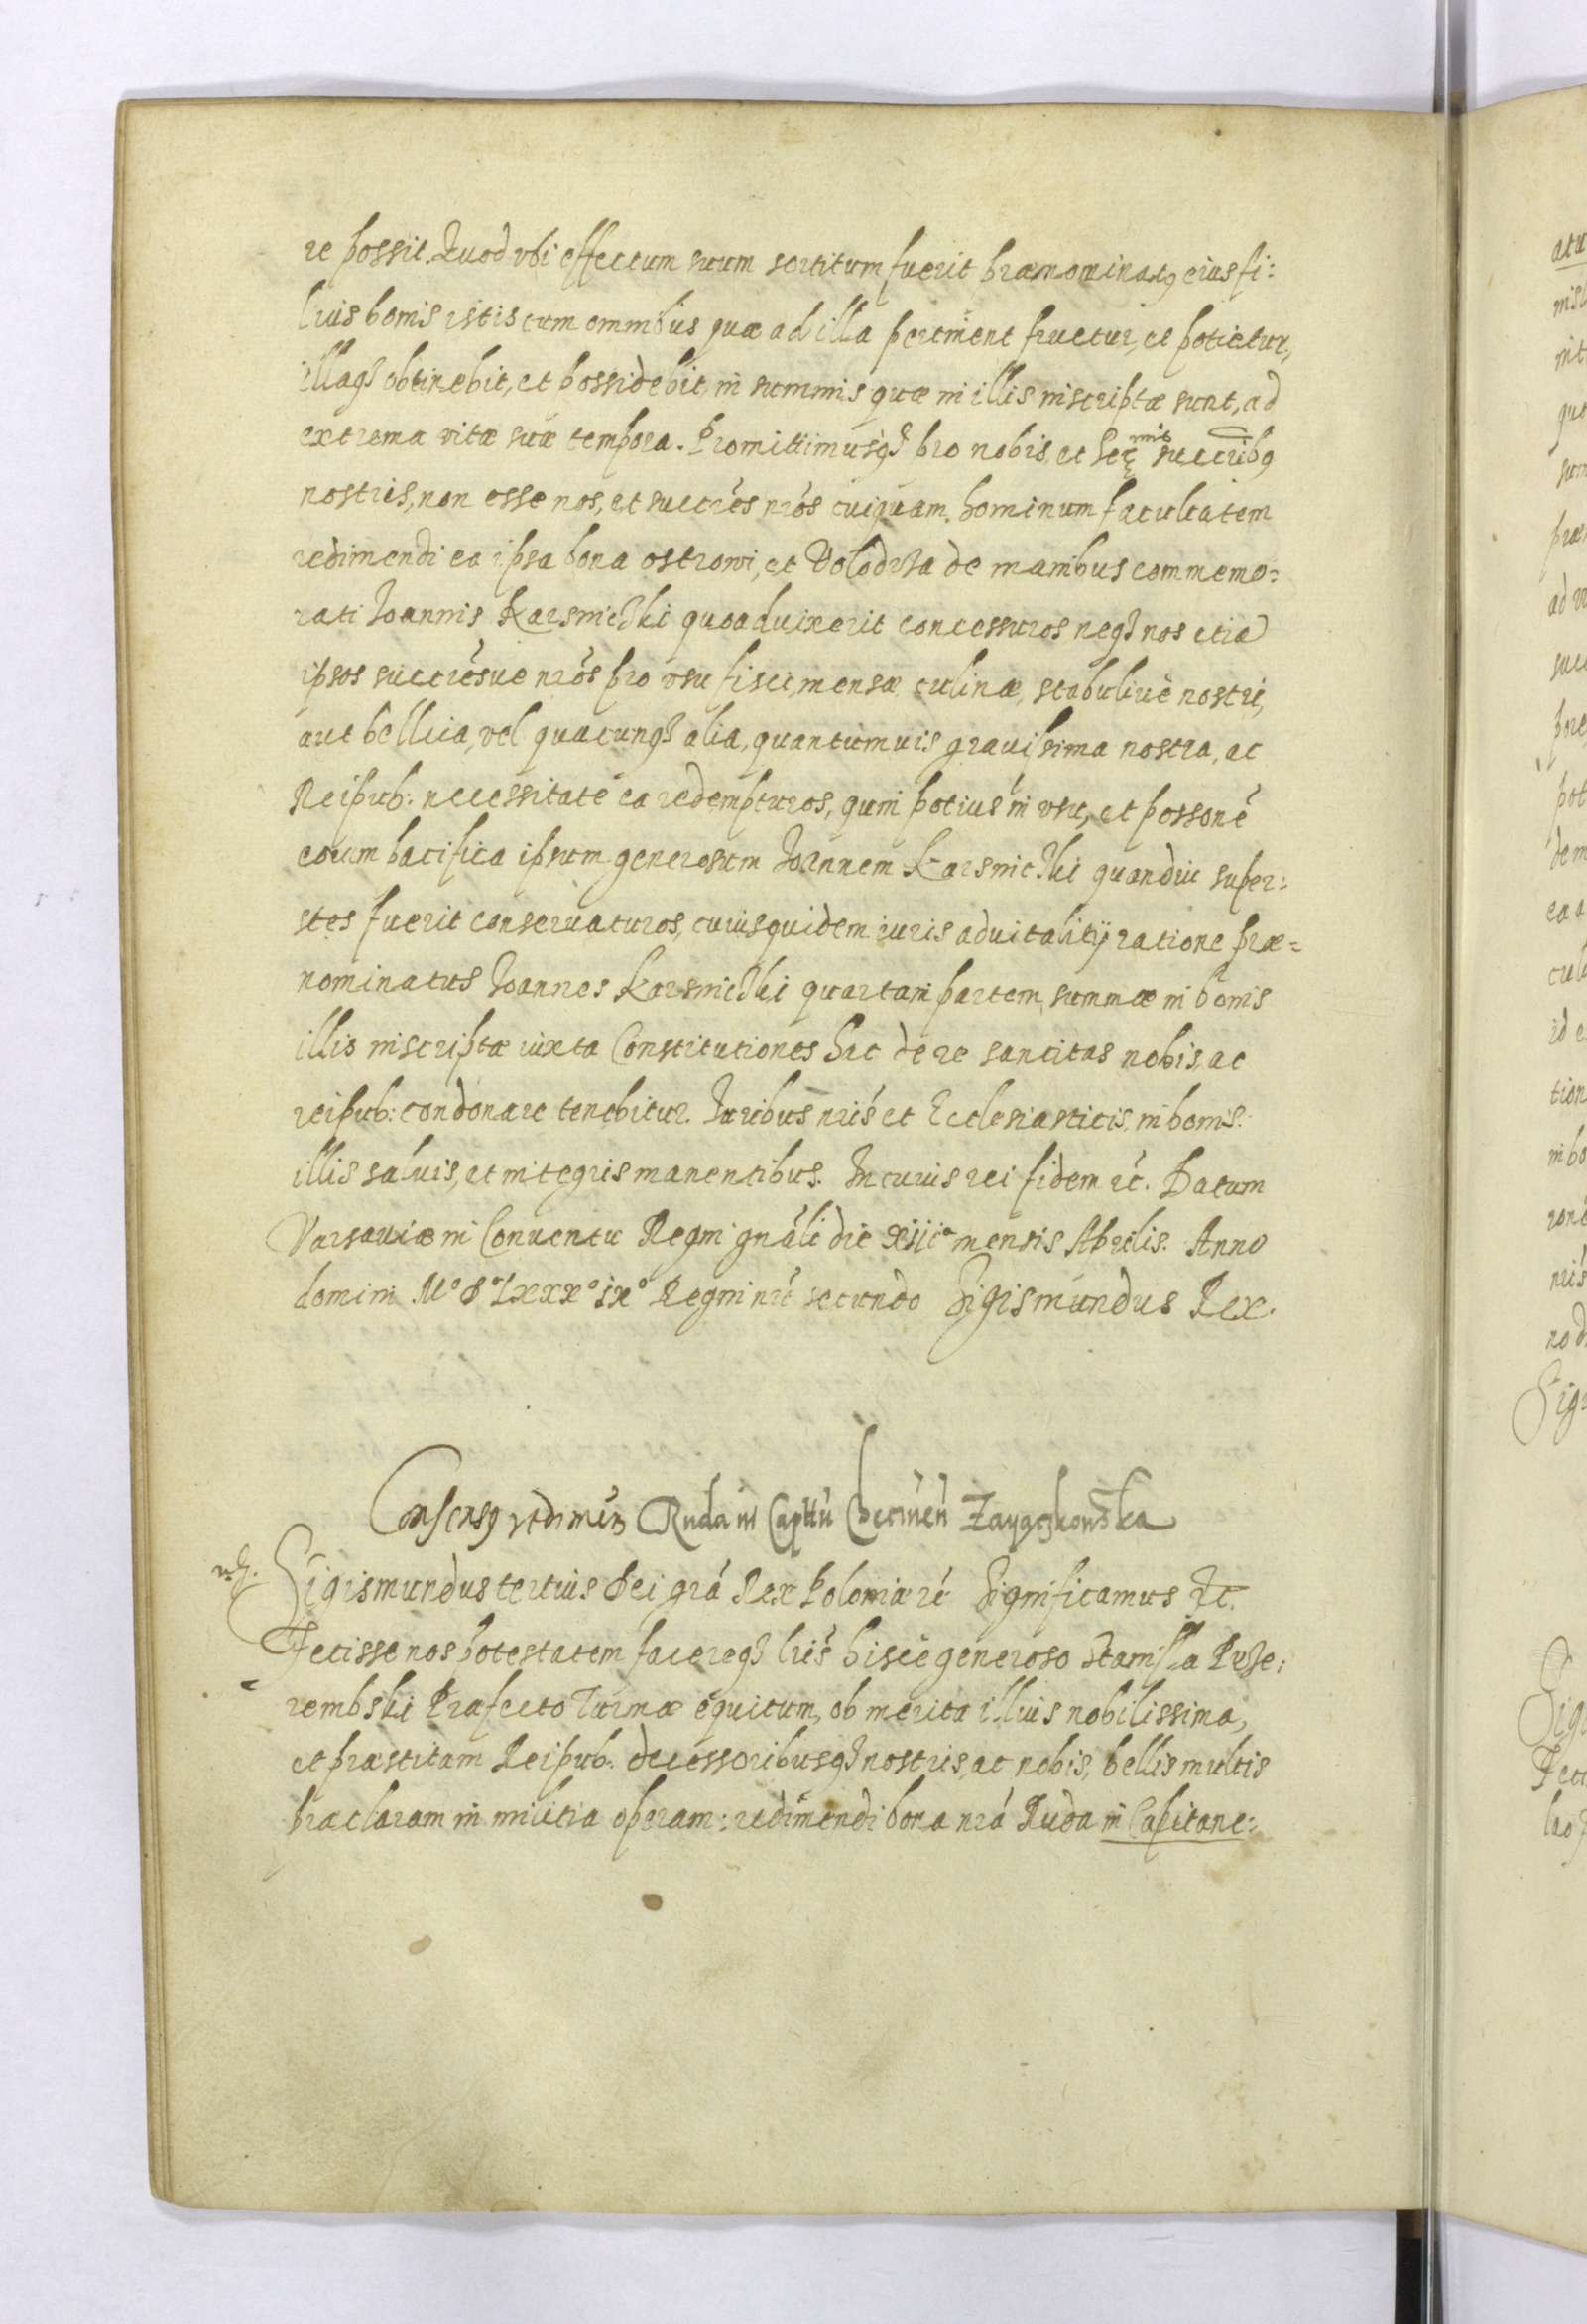 re possit. Quod vbi effectum suum sortitum fuerit prænominatꝯ eius fi:
lius bonis istis cum omnibus quæ ad illa pertinent fruetur, et potietur,
illaqꝫ obtinebit, et possidebit, in summis quæ in illis inscriptæ sunt, ad
extrema vitæ suæ tempora. Promittimusqꝫ pro nobis, et Seᵐⁱˢ succribꝯ
nostris, non esse nos, et succrēs nrōs cuiquam hominum facultatem
redimendi ea ipsa bona ostrowi, et Volodrza de manibus commemo:
rati Joannis Karsnicżki quoaduixerit concessuros neqꝫ nos etiā
ipsos succrēsue nrōs pro vsu fisci, mensæ culinæ, stabuliuè nostri,
aut bellica, vel quacunqꝫ alia, quantumuis grauissima nostra, ac
Reipub: necessitate ea redempturos, quin potius in vsu, et possonē
eorum pacifica ipsum generosum Joannem Karsnicżki quandiu super:
stes fuerit conseruaturos, cuiusquidem iuris aduitalitij ratione præ=
nominatus Joannes Karsnicżki quartam partem, summæ in bonis
illis inscriptæ iuxta Constitutiones hac de re sancitas nobis, ac
reipub: condonare tenebitur. Iuribus nris et Ecclesiasticis in bonis.
illis saluis, et integris manentibus. In cuius rei fidem rē. Datum
Varsauiæ in Conuentu Regni gnāli die xiiiᵃ mensis Aprilis. Anno
domini M° D° Lxxx° ix° Regni nrī secundo Sigismundus Rex.
Consensꝯ redimēn Ruda in Capttū Checinēn Zayączkowska
Sigismundus tertius Dei grā Rex Poloniæ rē Significamus rc.
Fecisse nos potestatem facereqꝫ lris hisce generoso Stanislao Pęże:
rembski Præfecto Turmæ equitum, ob merita illius nobilissima,
et præstitam Reipub. decessoribusqꝫ nostris, ac nobis, bellis multis
præclaram in militia operam: redimendi bona nrā Ruda in Capitane: